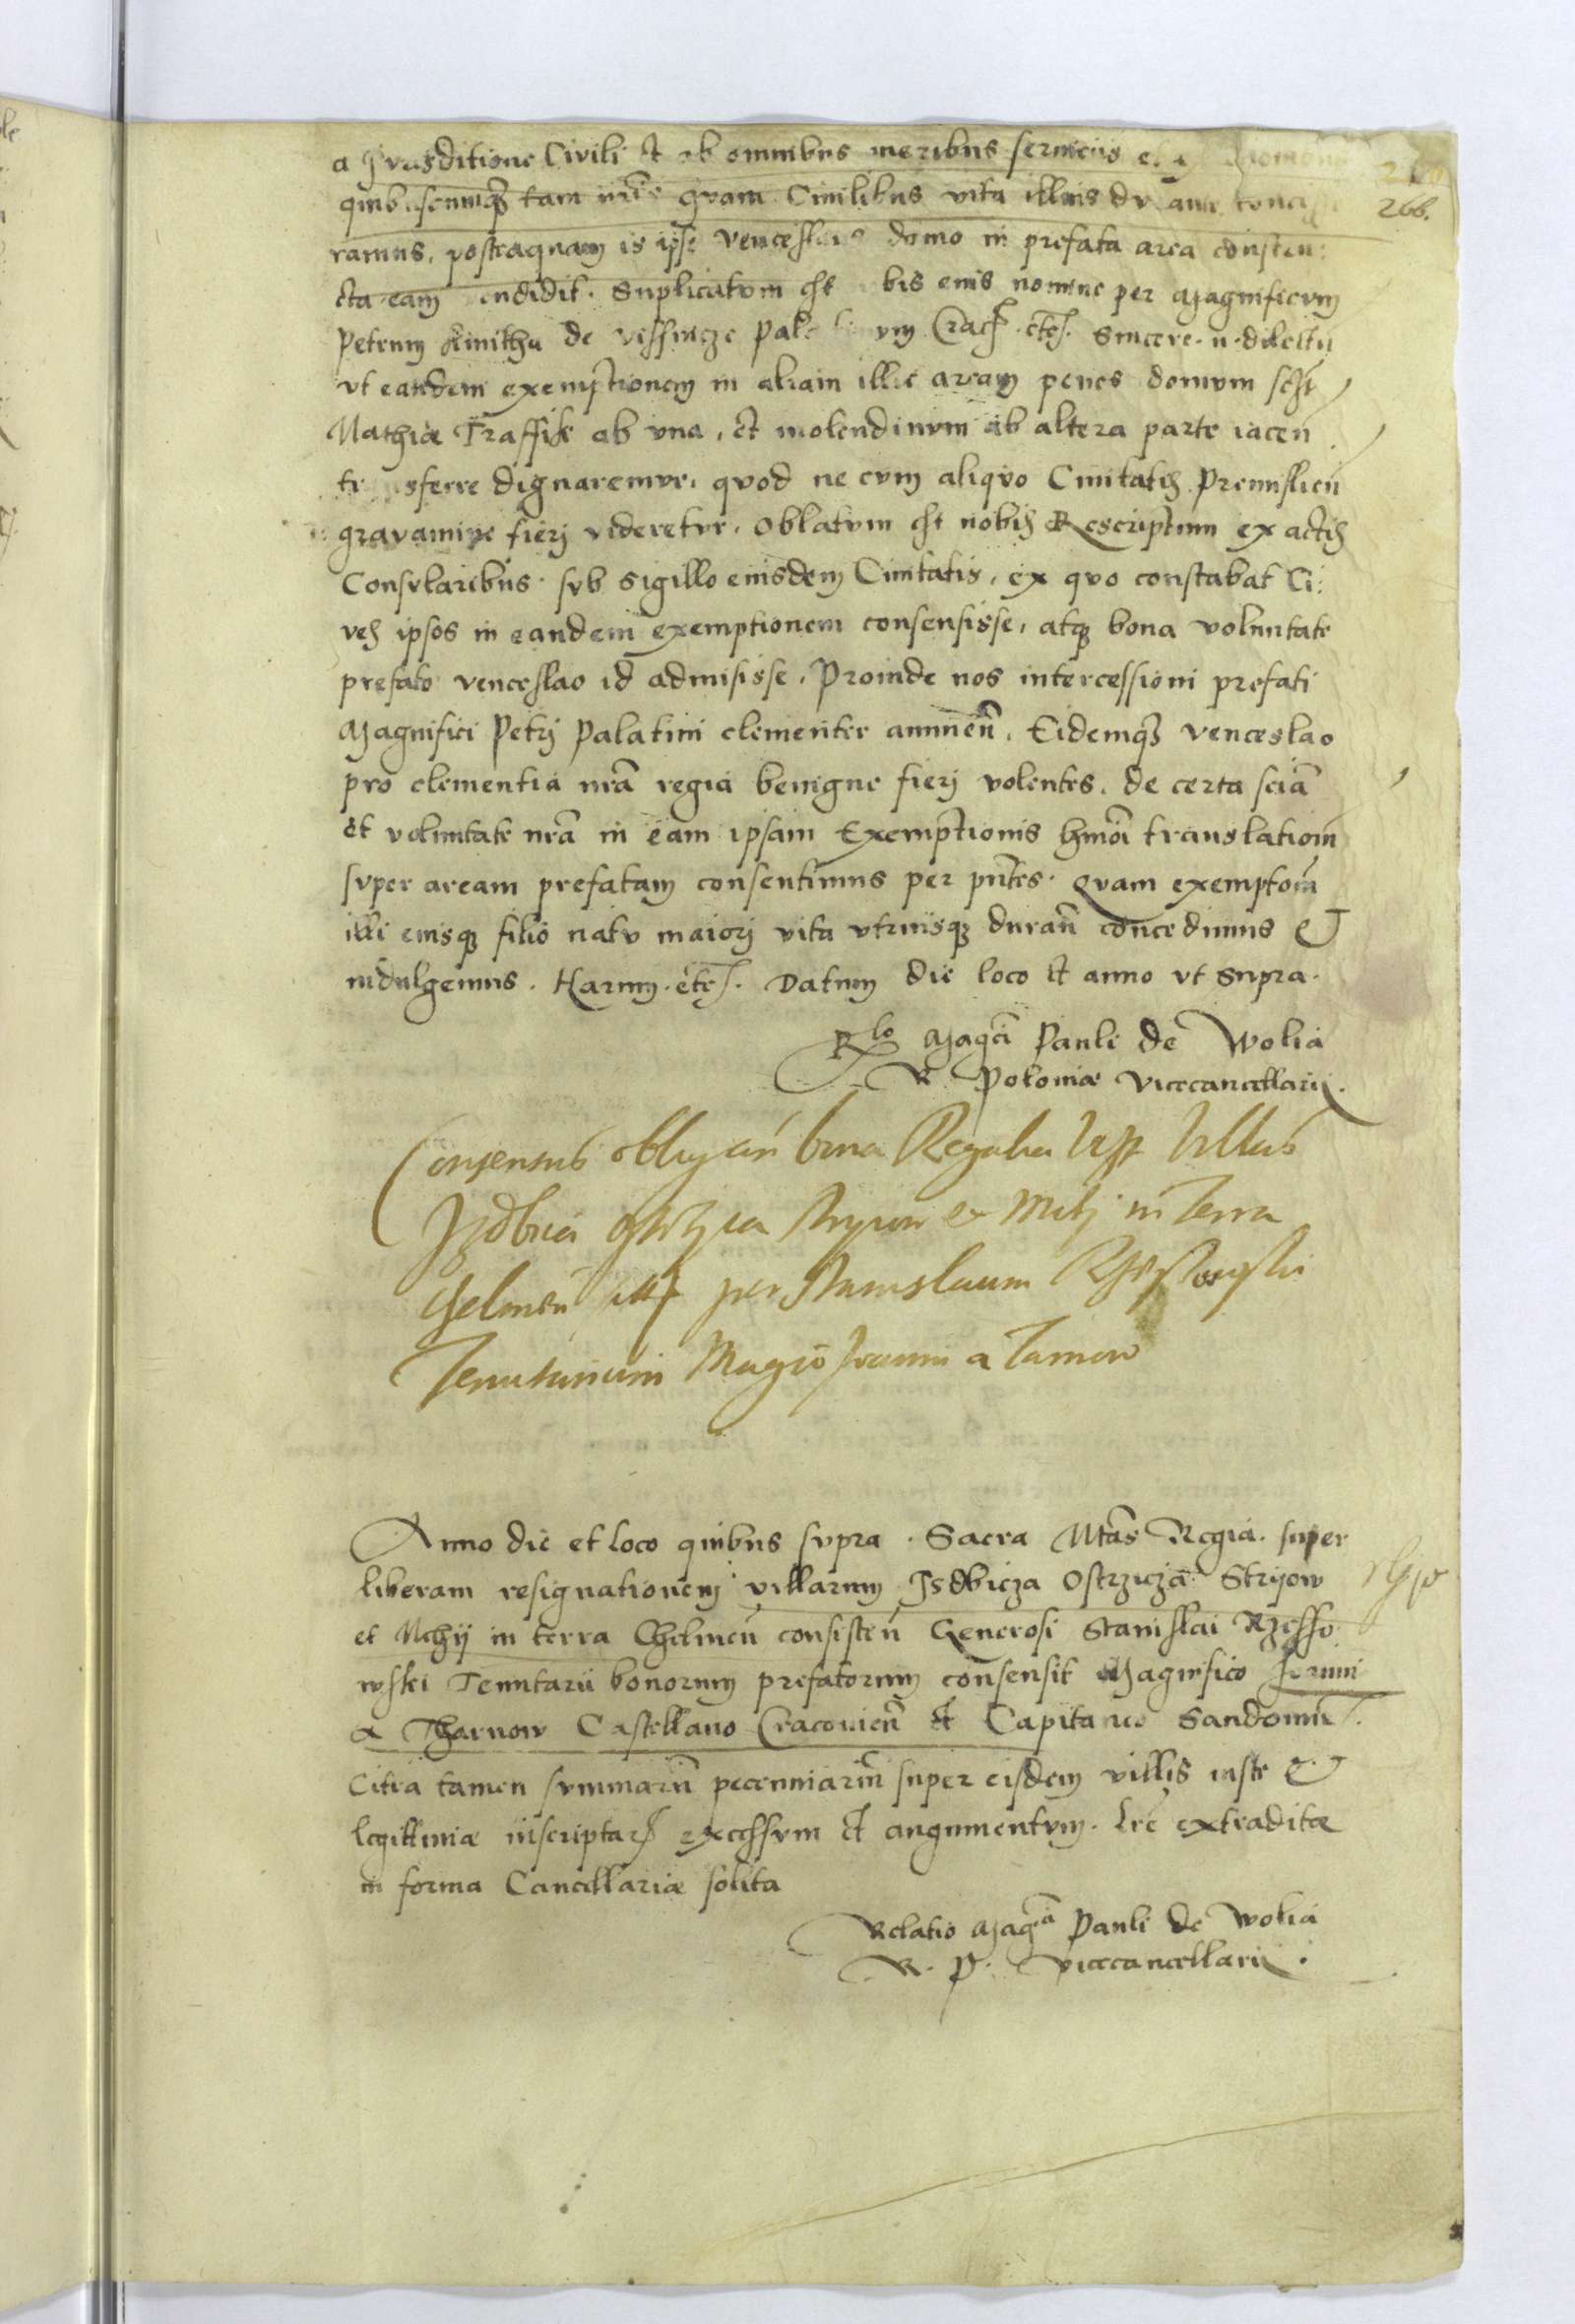 a Jurisditione Civili et ab omnibus oneribus serviciis et
quibuscunq3 tam nris quam Civilibus vita illius durante
ramus, posteaquam is ipse Venceslaus domo in prefata area constru:
cta eam vendidit. Suplicatum est nobis eius nomine per Magnificum
Petrum Kmitha de Vissnicze Palatinum Crac. etc. Sincere. n. dilectu
vt eandem exemptionem in aliam illic aream penes domum
Mathiæ Traffik ab vna, et molendinum ab altera parte iacen
transferre dignaremur, quod ne cum aliquo Civitatis Premislien
gravamine fierj videretur. Oblatum est nobis Rescriptum ex actis
Consularibus sub sigillo eiusdem Civitatis, ex quo constabat Ci:
ves ipsos in eandem exemptionem consensisse, atq3 bona voluntate
prefato Venceslao id admisisse. Proinde nos intercessioni prefati
Magnifici Petrj Palatini clementer annuen. Eidemq3 Venceslao
pro clementia nra regia benigne fierj volentes. de certa scia
et voluntate nra in eam ipsam Exemptionis hmoi translatiom
super aream prefatam consentimus per pntes. Quam exemptom
illi eiusq3 filio natu maiorj vita vtriusq3 duran concedimus et
indulgemus. Harum. etc. Datum die loco et anno vt supra.
Rlo Magci Pauli de Wolia
R. Poloniæ Vicecancellarij.
Consensus bona Regalia villas
in Terra
Chelmen per Stanislaum
Tenutarium Magco Joanni a Tarnow
Anno die et loco quibus supra. Sacra Mtas Regia. super
liberam resignationem villarum Isdbicza Ostrzicza Stryow
et Mchy in terra Chelmen consisten Generosi Stanislai Rzesso
wski Tenutarii bonorum prefatorum consensit Magnifico Joanni
a Tharnow Castellano Cracovien et Capitaneo Sandomir.
Citra tamen summarum pecuniarum super eisdem villis iuste et
legittime inscriptar excessum et augumentum. Lre extraditæ
in forma Cancellariæ solita
Relatio Magci Pauli de Wolia
R. P. Vicecancellarij.
266.